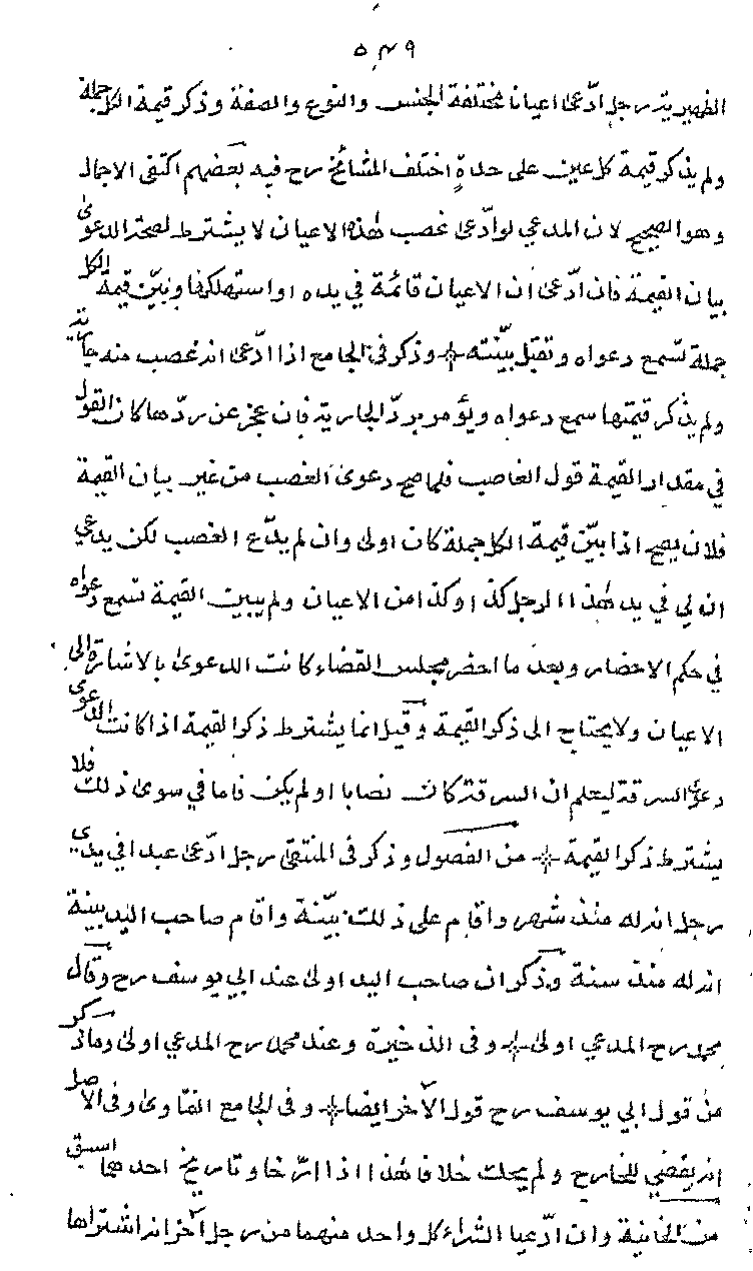 ٥٤٩
الظهيرية رجل ادّعى اعيانا مختلفة الجنس والنوع والصفة وذكر قيمة الكل جملة
ولم يذكر قيمة كل عين على حدةٍ اختلف المشائخ رح فيه بعضهم اكتفى الاجمال
وهو الصحيح لان المدعي لو ادّعى غصب هذه الاعيان لا يشترط لصحة الدعوىٰ
بيان القيمة فان ادّعى ان الاعيان قائمة في يده او استهلكها وبيّن قيمة الكل
جملة تسمع دعواه وتقبل بيّنته وذكر فى الجامع اذا ادّعى انه غصب منه جارية
ولم يذكر قيمتها سمع دعواه ويؤمر بردّ الجارية فان عجز عن ردّها كان القول
في مقدار القيمة قول الغاصب فلما صح دعوى الغصب من غير بيان القيمة
فلان يصح اذا بيّن قيمة الكل جملة كان اولى وان لم يدّع الغصب لكن يدعي
انه لي في يد هٰذا الرجل كذا وكذا من الاعيان ولم يبين القيمة تسمع دعواه
في حكم الاحضار وبعد ما احضر مجلس القضاء كانت الدعوىٰ بالاشارة الى
الاعيان ولا يحتاج الى ذكر القيمة وقيل انما يشترط ذكر القيمة اذا كانت الدعوى
دعوى السرقة ليعلم ان السرقة كانت نصابا او لم يكن فاما في سوى ذلك فلا
يشترط ذكر القيمة من الفصول وذكر فى المنتقى رجل ادّعى عبدا في يدي
رجل انه له منذ شهر واقام على ذلك بيّنة واقام صاحب اليد بينة
انه له منذ سنة وذكر ان صاحب اليد اولى عند ابي يوسف رح وقال
محمد رح المدعي اولى وفى الذخيرة وعند محمد رح المدعي اولى وما ذكر
من قول ابي يوسف رح قول الآخر ايضا وفى الجامع الفتاوىٰ وفى الاصل
انه يقضي للخارج ولم يحك خلافا هٰذا اذا ارّخا وتاريخ احدهما اسبق
من الخانية وان ادّعيا الشراء كل واحد منهما من رجل آخر انه اشتراها